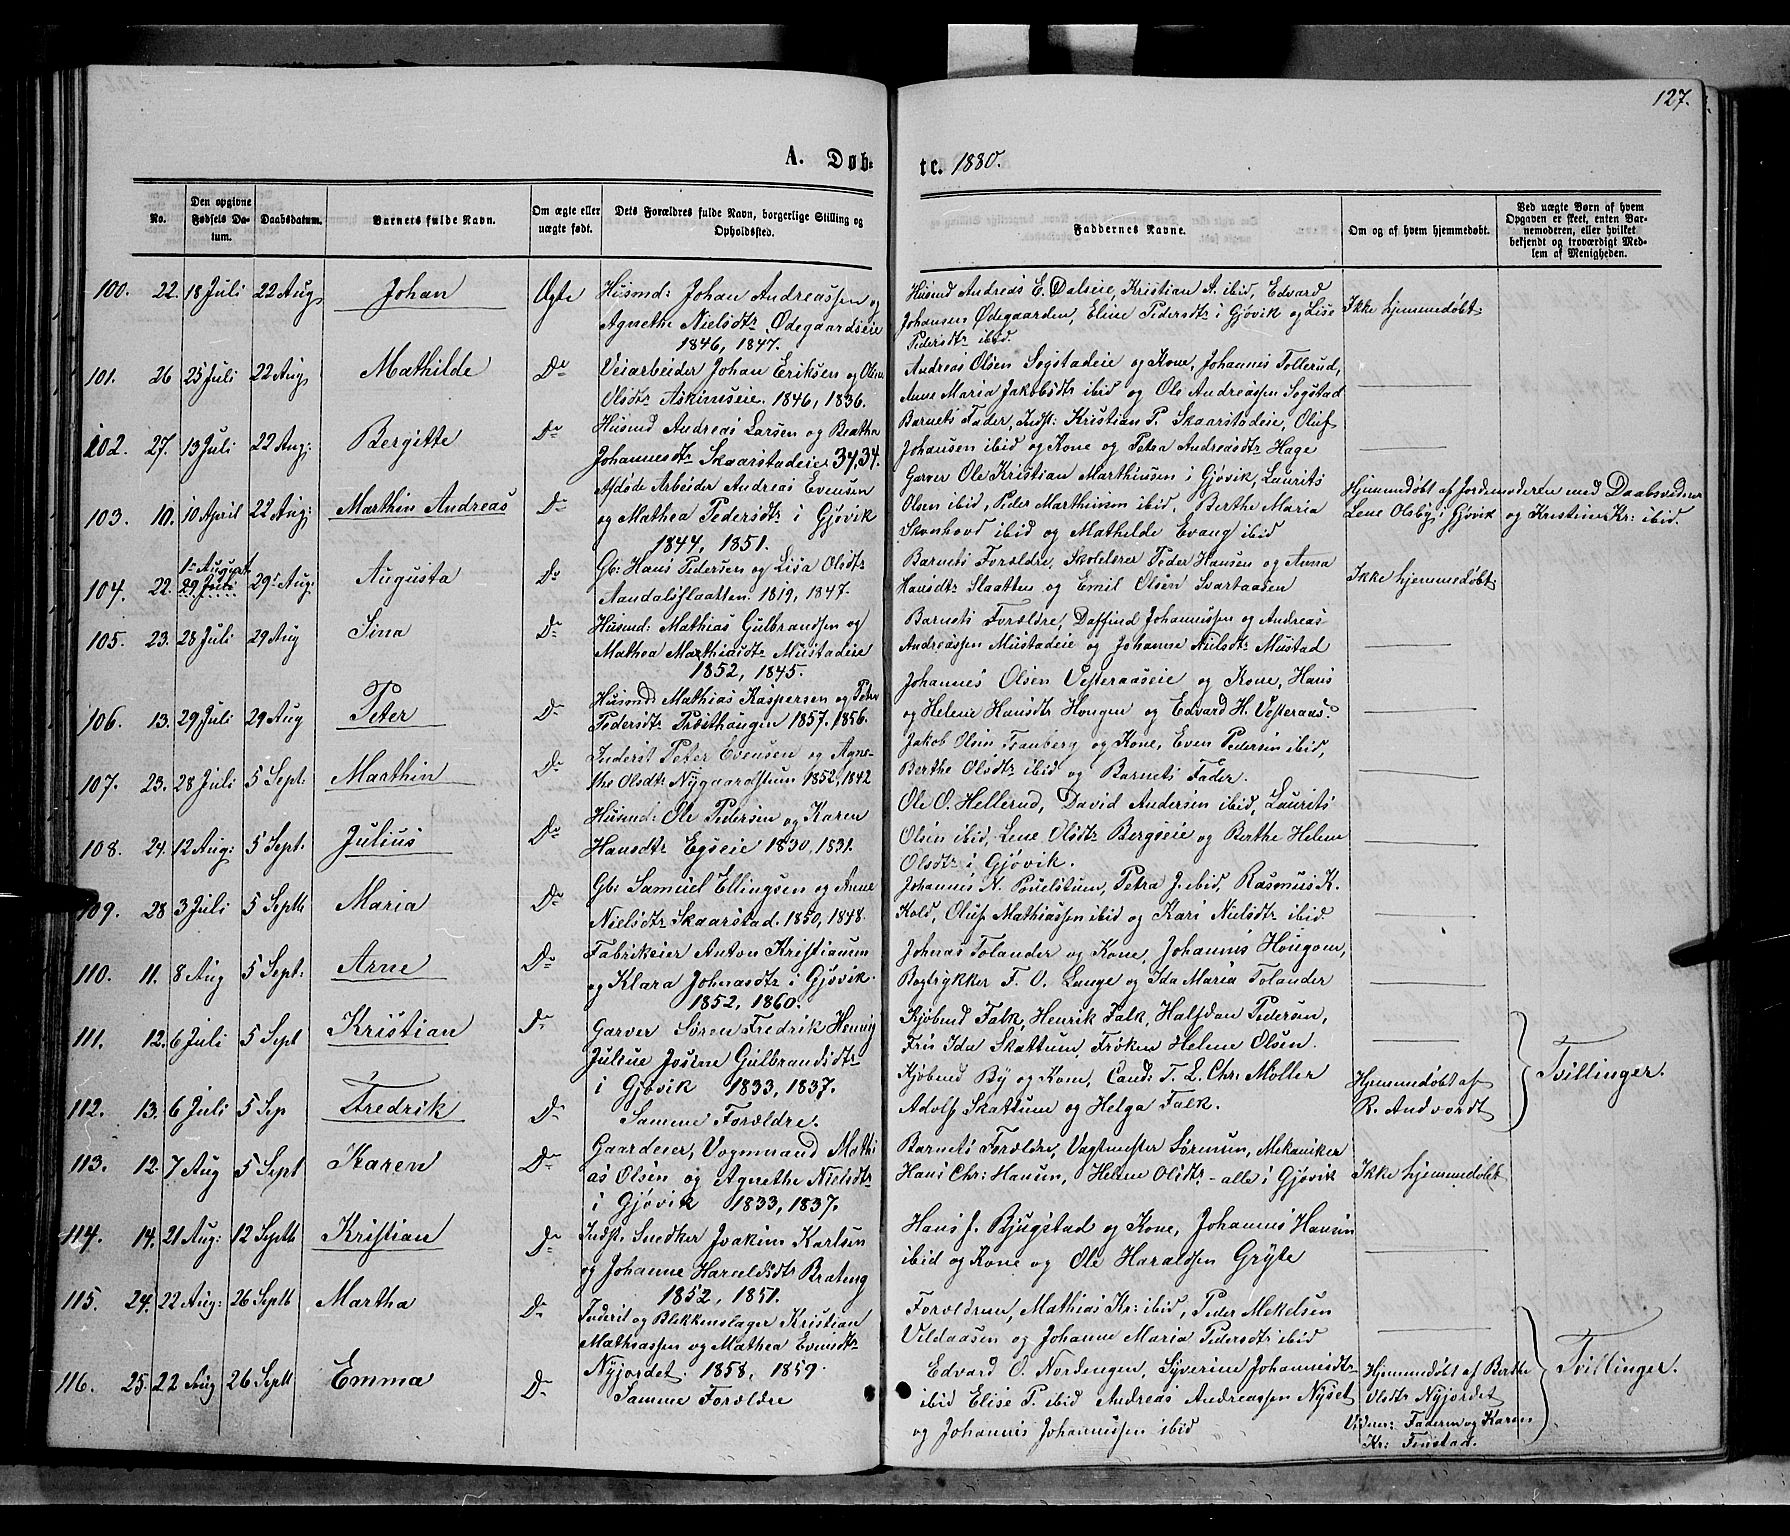 127.
A. Døb-
te. 1880.
No.
Den opgivne Fødsels Da-tum.
Daabsdatum.
Barnets fulde Navn.
Om ægte eller uægte født.
Dets Forældres fulde Navn, borgerlige Stilling og Opholdssted.
Faddernes Navne.
Om og af hvem hjemmedøbt.
Ved uægte Børn af hvem Opgaven er skeet, enten Bar-nemoderen, eller hvilket bekjendt og troværdigt Med-lem af Menigheden.
100. 22. 18 Juli 22 Aug Johan Ægte Husmd: Johan Andreassen og
Agnethe Nielsdtr Ødegaardseie
1846, 1847.
Husmd Andreas E. Dalseie, Kristian A. ibid, Edvard
Johansen Ødegaarden, Eline Pedersdtr i Gjøvik og Lise
Pedersdtr ibid.
Ikke hjemmedøbt.
101. 26 25 Juli 22 Aug Mathilde Do Veiarbeider Johan Eriksen og Olea
Olsdtr Askimseie. 1846, 1836.
Andreas Olsen Sogstadeie og Kone, Johannes Tollerud,
Anne Maria Jakobsdtr ibid og Ole Andreassen Sogstad
102. 27. 13 Juli 22 Aug: Bergitte Do Husmd Andreas Larsen og Beathe
Johannesdtr Skaarstadeie 34, 34.
Barnets Fader, Indst: Kristian P. Skaarstadeie, Oluf
Johansen ibid og Kone og Petra Andreasdtr Hage
103. 10. 10 April 22 Aug: Marthin Andreas Do Afdøde Arbeider Andreas Evensen
og Mathea Pedersdtr i Gjøvik
1844, 1851.
Garver Ole Kristian Marthinsen i Gjøvik, Laurits
Olsen ibid, Peder Marthinsen ibid, Berthe Maria
Skonhovd ibid og Mathilde Evang ibid
Hjemmedøbt af Jordemoderen med Daabsvidner
Lene Olsby i Gjøvik og Kristine Kr: ibid.
104. 22. 1ste August 29 Juli 29 Aug: Augusta Do Gb: Hans Pedersen og Lisa Olsdtr
Aandalsslaatten. 1819, 1847.
Barnets Forældre, Skolelærer Peder Hansen og Anna
Hansdtr Slaatten og Emil Olsen Svartaasen
Ikke hjemmedøbt
105. 23. 28 Juli 29 Aug Sina Do Husmd: Mathias Gulbrandsen og
Mathea Mathiasdtr Mustadeie
1852, 1845.
Barnets Forældre, Daffind Johannessen og Andreas
Andreassen Mustadeie og Johanne Nielsdtr Mustad
106. 13. 29 Juli 29 Aug Peter Do Husmd Mathias Kaspersen og Petra
Pedersdtr Præsthaugen 1857, 1856.
Johannes Olsen Vesteraaseie og Kone, Hans
og Helene Hansdtr Hougen og Edvard H. Vesteraas.
107. 23. 28 Juli 5 Sept: Marthin Do Inderst Peter Evensen og Agne-
the Olsdtr Nygaardstuen 1852, 1842
Jakob Olsen Tranberg og Kone, Even Pedersen ibid,
Berthe Olsdtr ibid og Barnets Fader.
108. 24. 12 Aug: 5 Sept. Julius Do Husmd: Ole Pedersen og Karen
Hansdtr Egseie 1830, 1831.
Ole O. Hellerud, David Andersen ibid, Laurits
Olsen ibid, Lene Olsdtr Bergseie og Berthe Helene
Olsdtr i Gjøvik.
109. 28 3 Juli 5 Septb Maria Do Gb: Samuel Ellingsen og Anne
Nielsdtr Skaarstad. 1850, 1848.
Johannes N. Pouelstuen, Petra J. ibid, Rasmus K.
Kold, Oluf Mathiassen ibid og Kari Nielsdtr ibid
110. 11. 8 Aug 5 Sept: Arne Do Fabrikeier Anton Kristiansen
og Klara Johnasdtr i Gjøvik.
1852, 1860.
Johnas Tolander og Kone, Johannes Hougom,
Bogtrykker F. O. Lange og Ida Maria Tolander
111. 12. 6 Juli 5 Sept Kristian Do Garver Søren Fredrik Hennig
Juliue Josine Gulbrandsdtr
i Gjøvik 1833, 1837.
Kjøbmd Falk, Henrik Falk, Halfdan Pedersen,
Frk Ida Skattum, Frøken Helene Olsen.
Tvillinger.
112. 13. 6 Juli 5 Sep Fredrik Do Samme Forældre.
Kjøbmd By og Kone, Cand: T. L. Chr: Møller
Adolf Skattum og Helga Falk.
Hjemmedøbt af
R. Andvordt
113. 12. 7 Aug 5 Sept Karen Do Gaardeier, Vognmand Mathi
as Olsen og Agnethe Nielsdtr
i Gjøvik 1833, 1837.
Barnets Forældre, Vagtmester Sørensen, Mekaniker
Hans Chr: Hansen, Helene Olsdtr - alle i Gjøvik
Ikke hjemmedøbt
114. 14. 21 Aug: 12 Septb Kristian Do Indst. Snedker Joakim Karlsen
og Johanne Haraldsdtr Brateng
1852, 1851.
Hans J. Bjugstad og Kone, Johannes Hansen
ibid og Kone og Ole Haraldsen Gryte
115. 24. 22 Aug: 26 Septb Martha Do Inderst og Blekkenslager Kristian
Mathiassen og Mathea Evensdtr
Nyjordet. 1858, 1859.
Forældrene, Mathias Kr: ibid, Peder Mikelsen
Vildaasen og Johanne Maria Pedersdtr ibid
Tvillinger.
116. 25. 22 Aug 26 Septb Emma Do Samme Forældre
Edvard O. Nordengen, Syverine Johannesdtr
ibid Elise P. ibid Andreas Andreassen Nyset
og Johannes Johannessen ibid
Hjemmedøbt af Berthe
Olsdtr Nyjordet
Vidner: Faderen og Karen
Kr: Finstad.